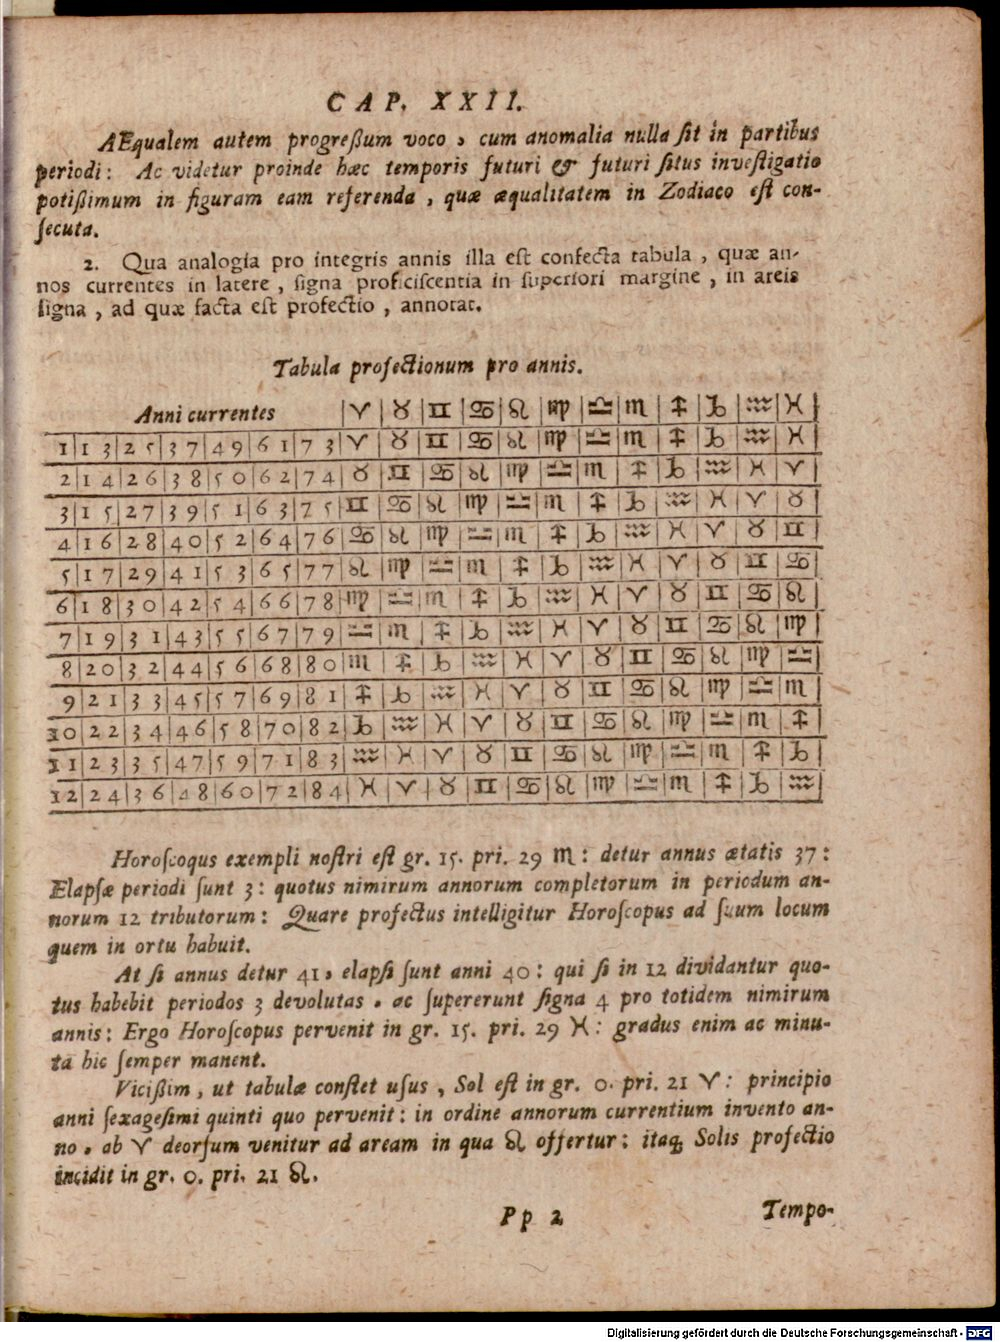 CAP. XXII.
AEqualem autem progreßum voco, cum anomalia nulla ſit in partibus
periodi: Ac videtur proinde hæc temporis futuri & futuri ſitus inveſtigatio
potißimum in figuram eam referenda, quæ æqualitatem in Zodiaco eſt con-
ſecuta.
2. Qua analogia pro integris annis illa eſt confecta tabula, quæ an-
nos currentes in latere, ſigna proficiſcentia in ſuperiori margine, in areis
ſigna, ad quæ facta eſt profectio, annotat.
Tabula profectionum pro annis.
Anni currentes | ♈ | ♉ | ♊ | ♋ | ♌ | ♍ | ♎ | ♏ | ♐ | ♑ | ♒ | ♓
1 | 13 | 25 | 37 | 49 | 61 | 73 | ♈ | ♉ | ♊ | ♋ | ♌ | ♍ | ♎ | ♏ | ♐ | ♑ | ♒ | ♓
2 | 14 | 26 | 38 | 50 | 62 | 74 | ♉ | ♊ | ♋ | ♌ | ♍ | ♎ | ♏ | ♐ | ♑ | ♒ | ♓ | ♈
3 | 15 | 27 | 39 | 51 | 63 | 75 | ♊ | ♋ | ♌ | ♍ | ♎ | ♏ | ♐ | ♑ | ♒ | ♓ | ♈ | ♉
4 | 16 | 28 | 40 | 52 | 64 | 76 | ♋ | ♌ | ♍ | ♎ | ♏ | ♐ | ♑ | ♒ | ♓ | ♈ | ♉ | ♊
5 | 17 | 29 | 41 | 53 | 65 | 77 | ♌ | ♍ | ♎ | ♏ | ♐ | ♑ | ♒ | ♓ | ♈ | ♉ | ♊ | ♋
6 | 18 | 30 | 42 | 54 | 66 | 78 | ♍ | ♎ | ♏ | ♐ | ♑ | ♒ | ♓ | ♈ | ♉ | ♊ | ♋ | ♌
7 | 19 | 31 | 43 | 55 | 67 | 79 | ♎ | ♏ | ♐ | ♑ | ♒ | ♓ | ♈ | ♉ | ♊ | ♋ | ♌ | ♍
8 | 20 | 32 | 44 | 56 | 68 | 80 | ♏ | ♐ | ♑ | ♒ | ♓ | ♈ | ♉ | ♊ | ♋ | ♌ | ♍ | ♎
9 | 21 | 33 | 45 | 57 | 69 | 81 | ♐ | ♑ | ♒ | ♓ | ♈ | ♉ | ♊ | ♋ | ♌ | ♍ | ♎ | ♏
10 | 22 | 34 | 46 | 58 | 70 | 82 | ♑ | ♒ | ♓ | ♈ | ♉ | ♊ | ♋ | ♌ | ♍ | ♎ | ♏ | ♐
11 | 23 | 35 | 47 | 59 | 71 | 83 | ♒ | ♓ | ♈ | ♉ | ♊ | ♋ | ♌ | ♍ | ♎ | ♏ | ♐ | ♑
12 | 24 | 36 | 48 | 60 | 72 | 84 | ♓ | ♈ | ♉ | ♊ | ♋ | ♌ | ♍ | ♎ | ♏ | ♐ | ♑ | ♒
Horoſcoqus exempli noſtri eſt gr. 15. pri. 29 ♏: detur annus ætatis 37:
Elapſæ periodi ſunt 3: quotus nimirum annorum completorum in periodum an-
norum 12 tributorum: Quare profectus intelligitur Horoſcopus ad ſuum locum
quem in ortu habuit.
At ſi annus detur 41, elapſi ſunt anni 40: qui ſi in 12 dividantur quo-
tus habebit periodos 3 devolutas, ac ſupererunt ſigna 4 pro totidem nimirum
annis: Ergo Horoſcopus pervenit in gr. 15. pri. 29 ♓: gradus enim ac minu-
ta hic ſemper manent.
Vicißim, ut tabulæ conſtet uſus, Sol eſt in gr. 0. pri. 21 ♈: principio
anni ſexageſimi quinti quo pervenit: in ordine annorum currentium invento an-
no, ab ♈ deorſum venitur ad aream in qua ♌ offertur: itaq; Solis profectio
incidit in gr. 0. pri. 21 ♌.
Pp 2
Tempo-
Digitalisierung gefördert durch die Deutsche Forschungsgemeinschaft - DFG